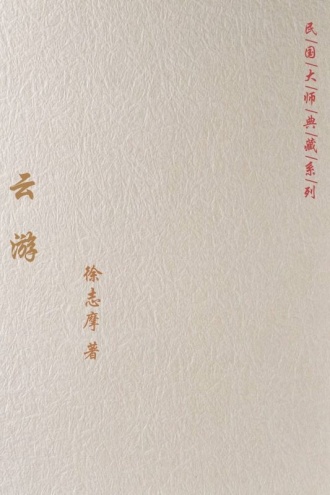 民国大师典藏系列
云游
徐志摩 著